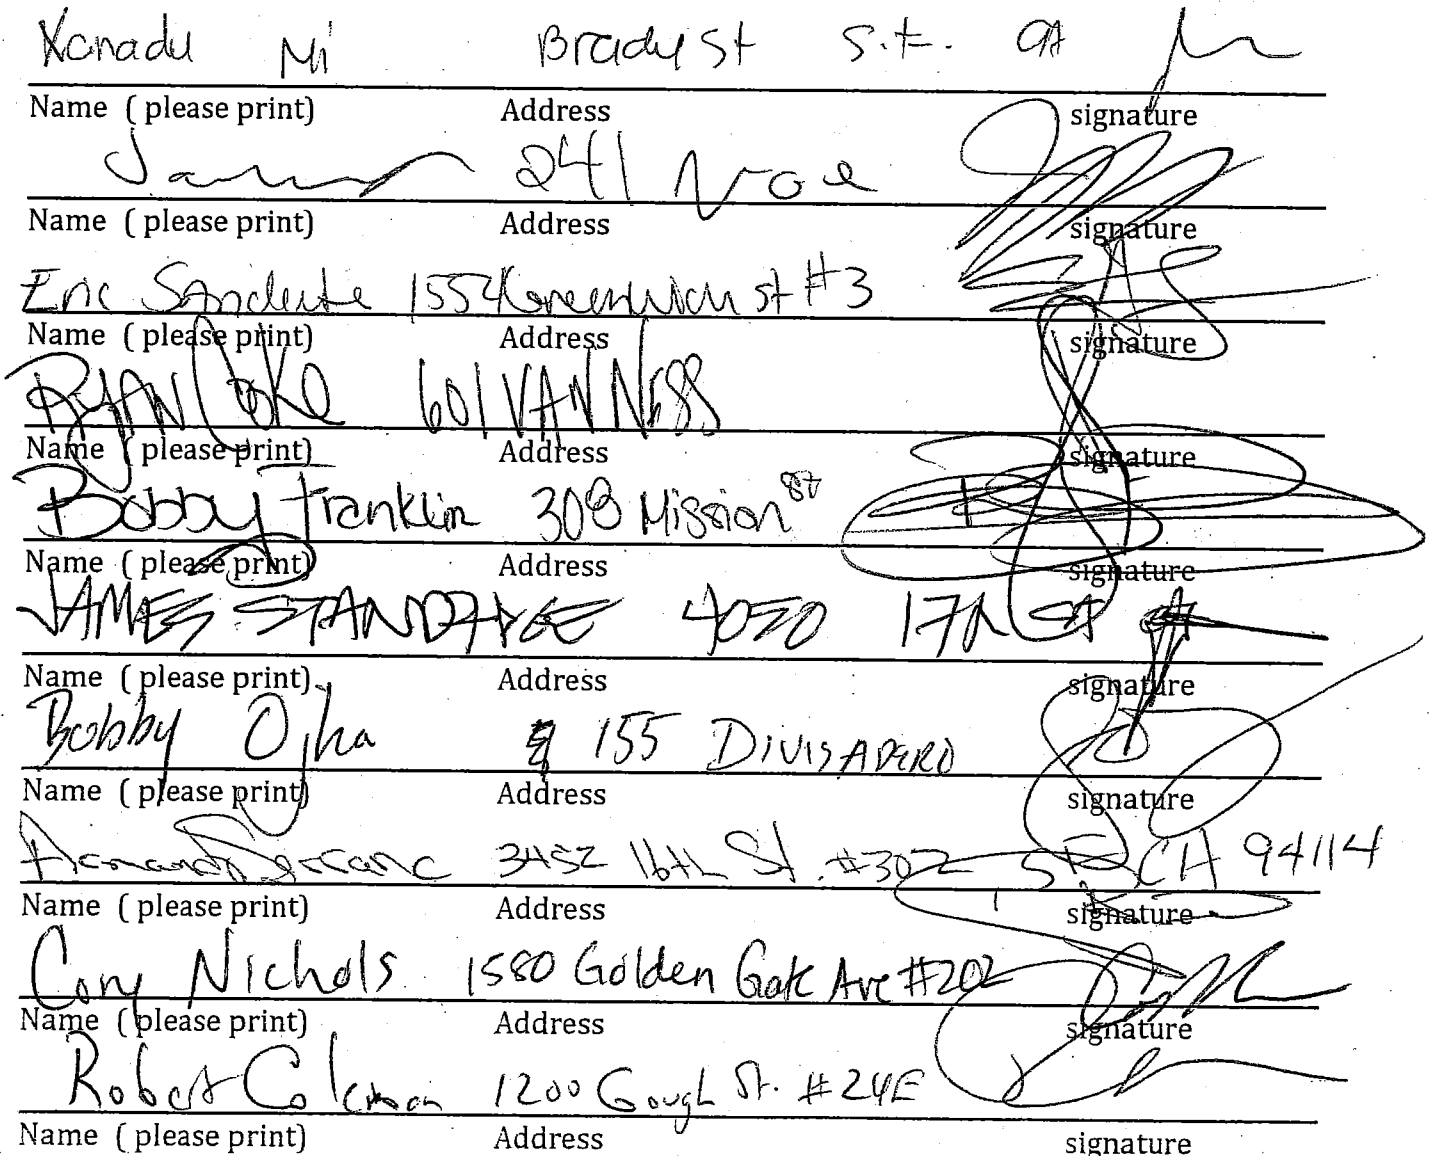 Xanadu Mi Brady St S.F. CA
Name ( please print) Address signature
241 Noe
Name ( please print) Address signature
Eric 1552 Greenwich st #3
Name ( please print) Address signature
RYAN Coke 601 VAN NESS
Name ( please print) Address signature
Bobby Franklin 308 Mission St
Name ( please print) Address signature
JAMES STANDIDGE 4050 17th ST
Name ( please print) Address signature
Bobby Ojha 155 DIVISADERO
Name ( please print) Address signature
Armando Serrano 3452 16th St. #302, SF, CA 94114
Name ( please print) Address signature
Cory Nichols 1580 Golden Gate Ave #202
Name ( please print) Address signature
Robert Coleman 1200 Gough St. #24E
Name ( please print) Address signature